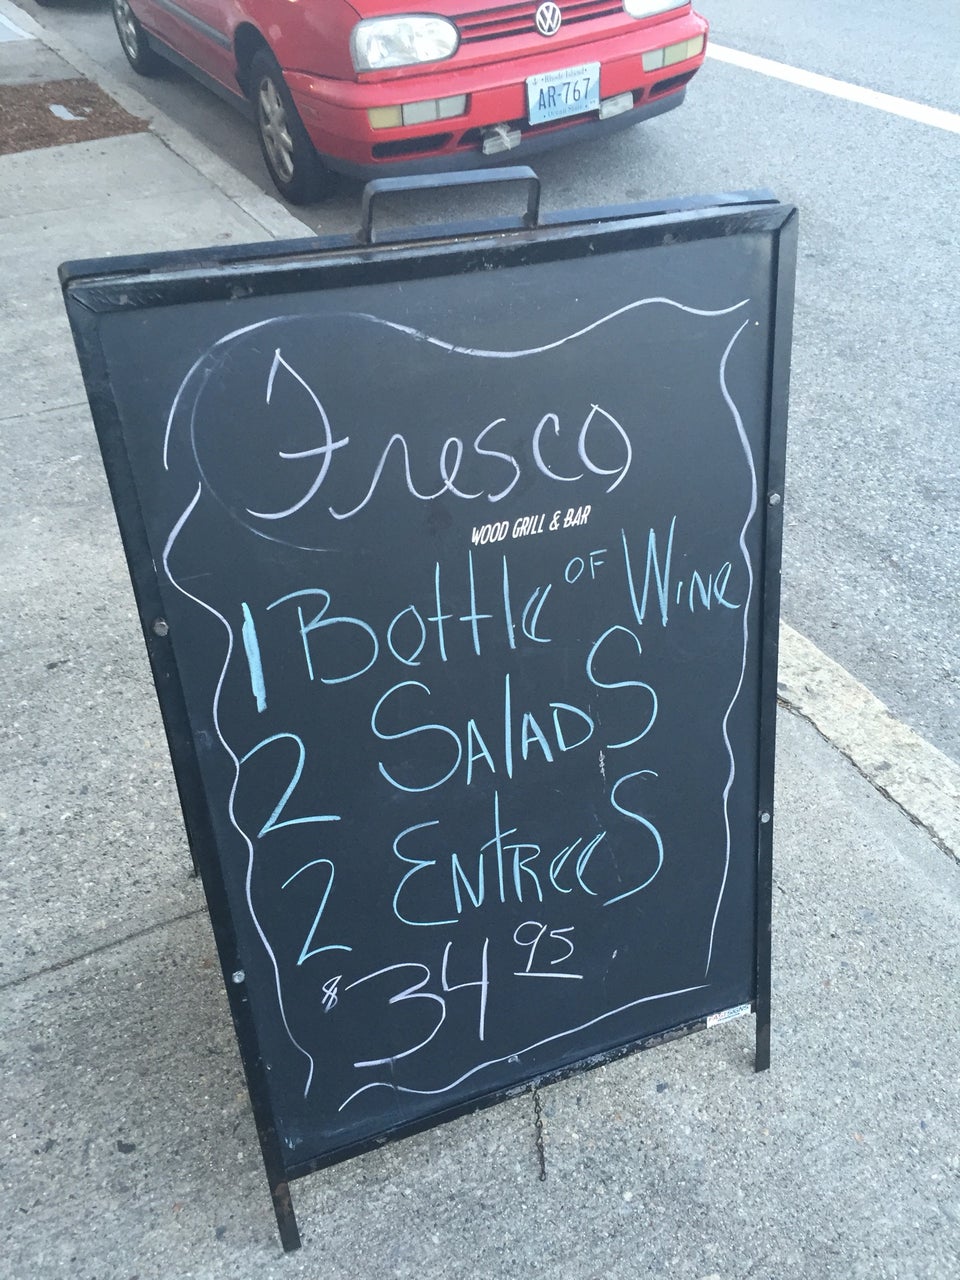 Rhode Island
AR-767
Ocean State
Fresco
WOOD GRILL & BAR
1 Bottle OF Wine
2 SALADS
2 ENTREES
$34 95